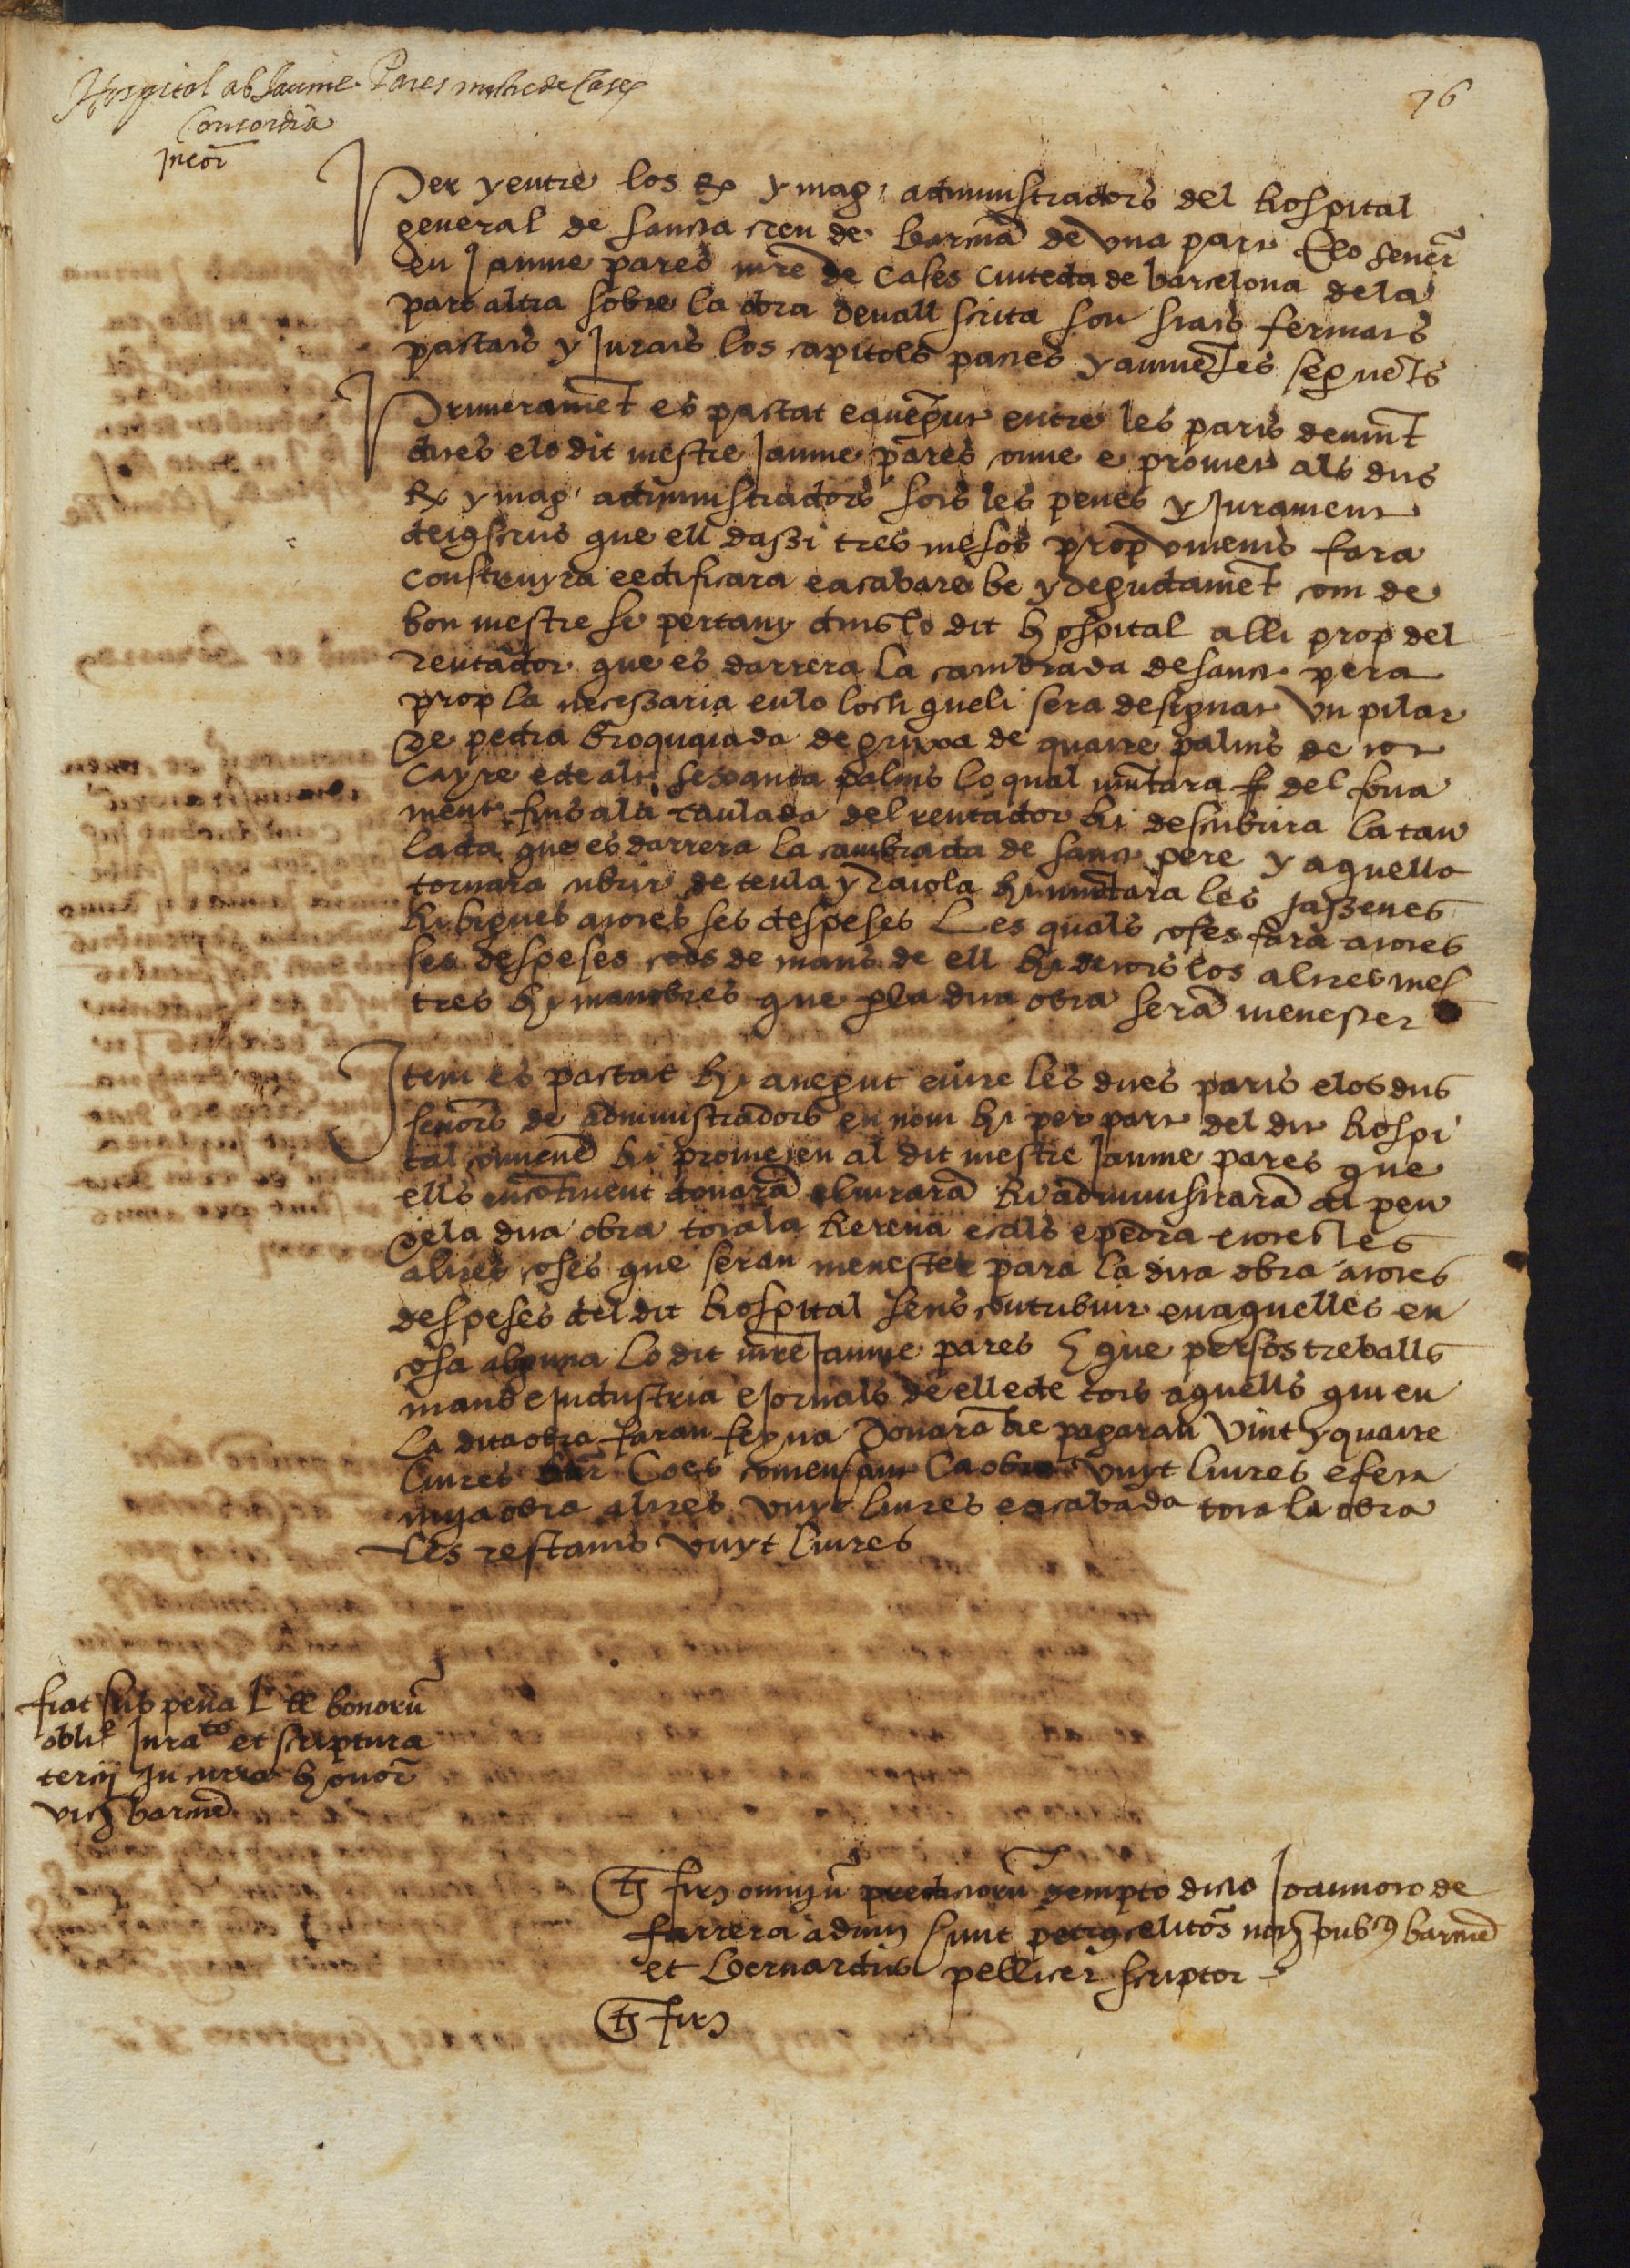 Hospital ab Jaume Pares mestre de Cases
Concordia
76
Per y entre los Rx y mag. administradors del hospital
general de sancta creu de barna de una part E lo sener
en Jaume pares mre de cases ciuteda de barcelona de la
part altra sobre la obra deuall scrita son stats fermats
pactats y Jurats los capitols pactes y auinēses seguēts
Primeramēt es pactat e auēgut entre les parts deuint
dites e lo dit mestre Jaume pares conue e promet als dits
Rx y mag. administradors sots les penes y Jurament
deigscrits que ell dassi tres mesos prop vinents fara
construyra e edificara e acabara be y degudamēt com de
bon mestre se pertany dins lo dit hospital alli prop del
rentador que es darrera la cambrada de sanct pera
prop la necessaria en lo loch que li sera designat vn pilar
de pedra broqueiada de gruxa de quatre palms de tot
cayre e de alt sexanta palms lo qual muntara del fona
ment fins a la taulada del rentador hi descubrira la tau
lada que es darrera la cambrada de sanct pere y aquella
tornara cubrir de teula y raiola hi muntara les jassenes
hi bigues a totes ses despeses Les quals coses fara a totes
ses despeses coes de mans de ell hi de tots los altres mes
tres hi manobres que p la dita obra serā menester
Item es pactat hi auegut entre les dites parts e los dits
senors de administradors en nom hi per part del dit hospi
tal conuenē hi prometen al dit mestre Jaume pares que
ells encōtinent donarā e liurarā hi administrarā al peu
de la dita obra tota la herena e cals e pedra e totes les
altres coses que seran menester para la dita obra a totes
despeses del dit hospital sens contribuir en aquelles en
cosa alguna lo dit mre Jaume pares E que per sos treballs
mans e Industria e Jornals de ell e de tots aquells qui en
la dita obra faran feyna Donarā he pagaran vint y quatre
liures coes comensant la obra vuyt liures e feta
mija obra altres vuyt liures e acabada tota la obra
les restants vuyt liures
fiat sub pena L ll bonorū
Jurato et scriptura
tercij In curia honor
vicij barnē
Ts firᵉ omniū predictorū dempto dicto Joannoto de
farrera sunt petrus not pubs barnē
et Bernardus pellicer scriptor
Ts firᵉ